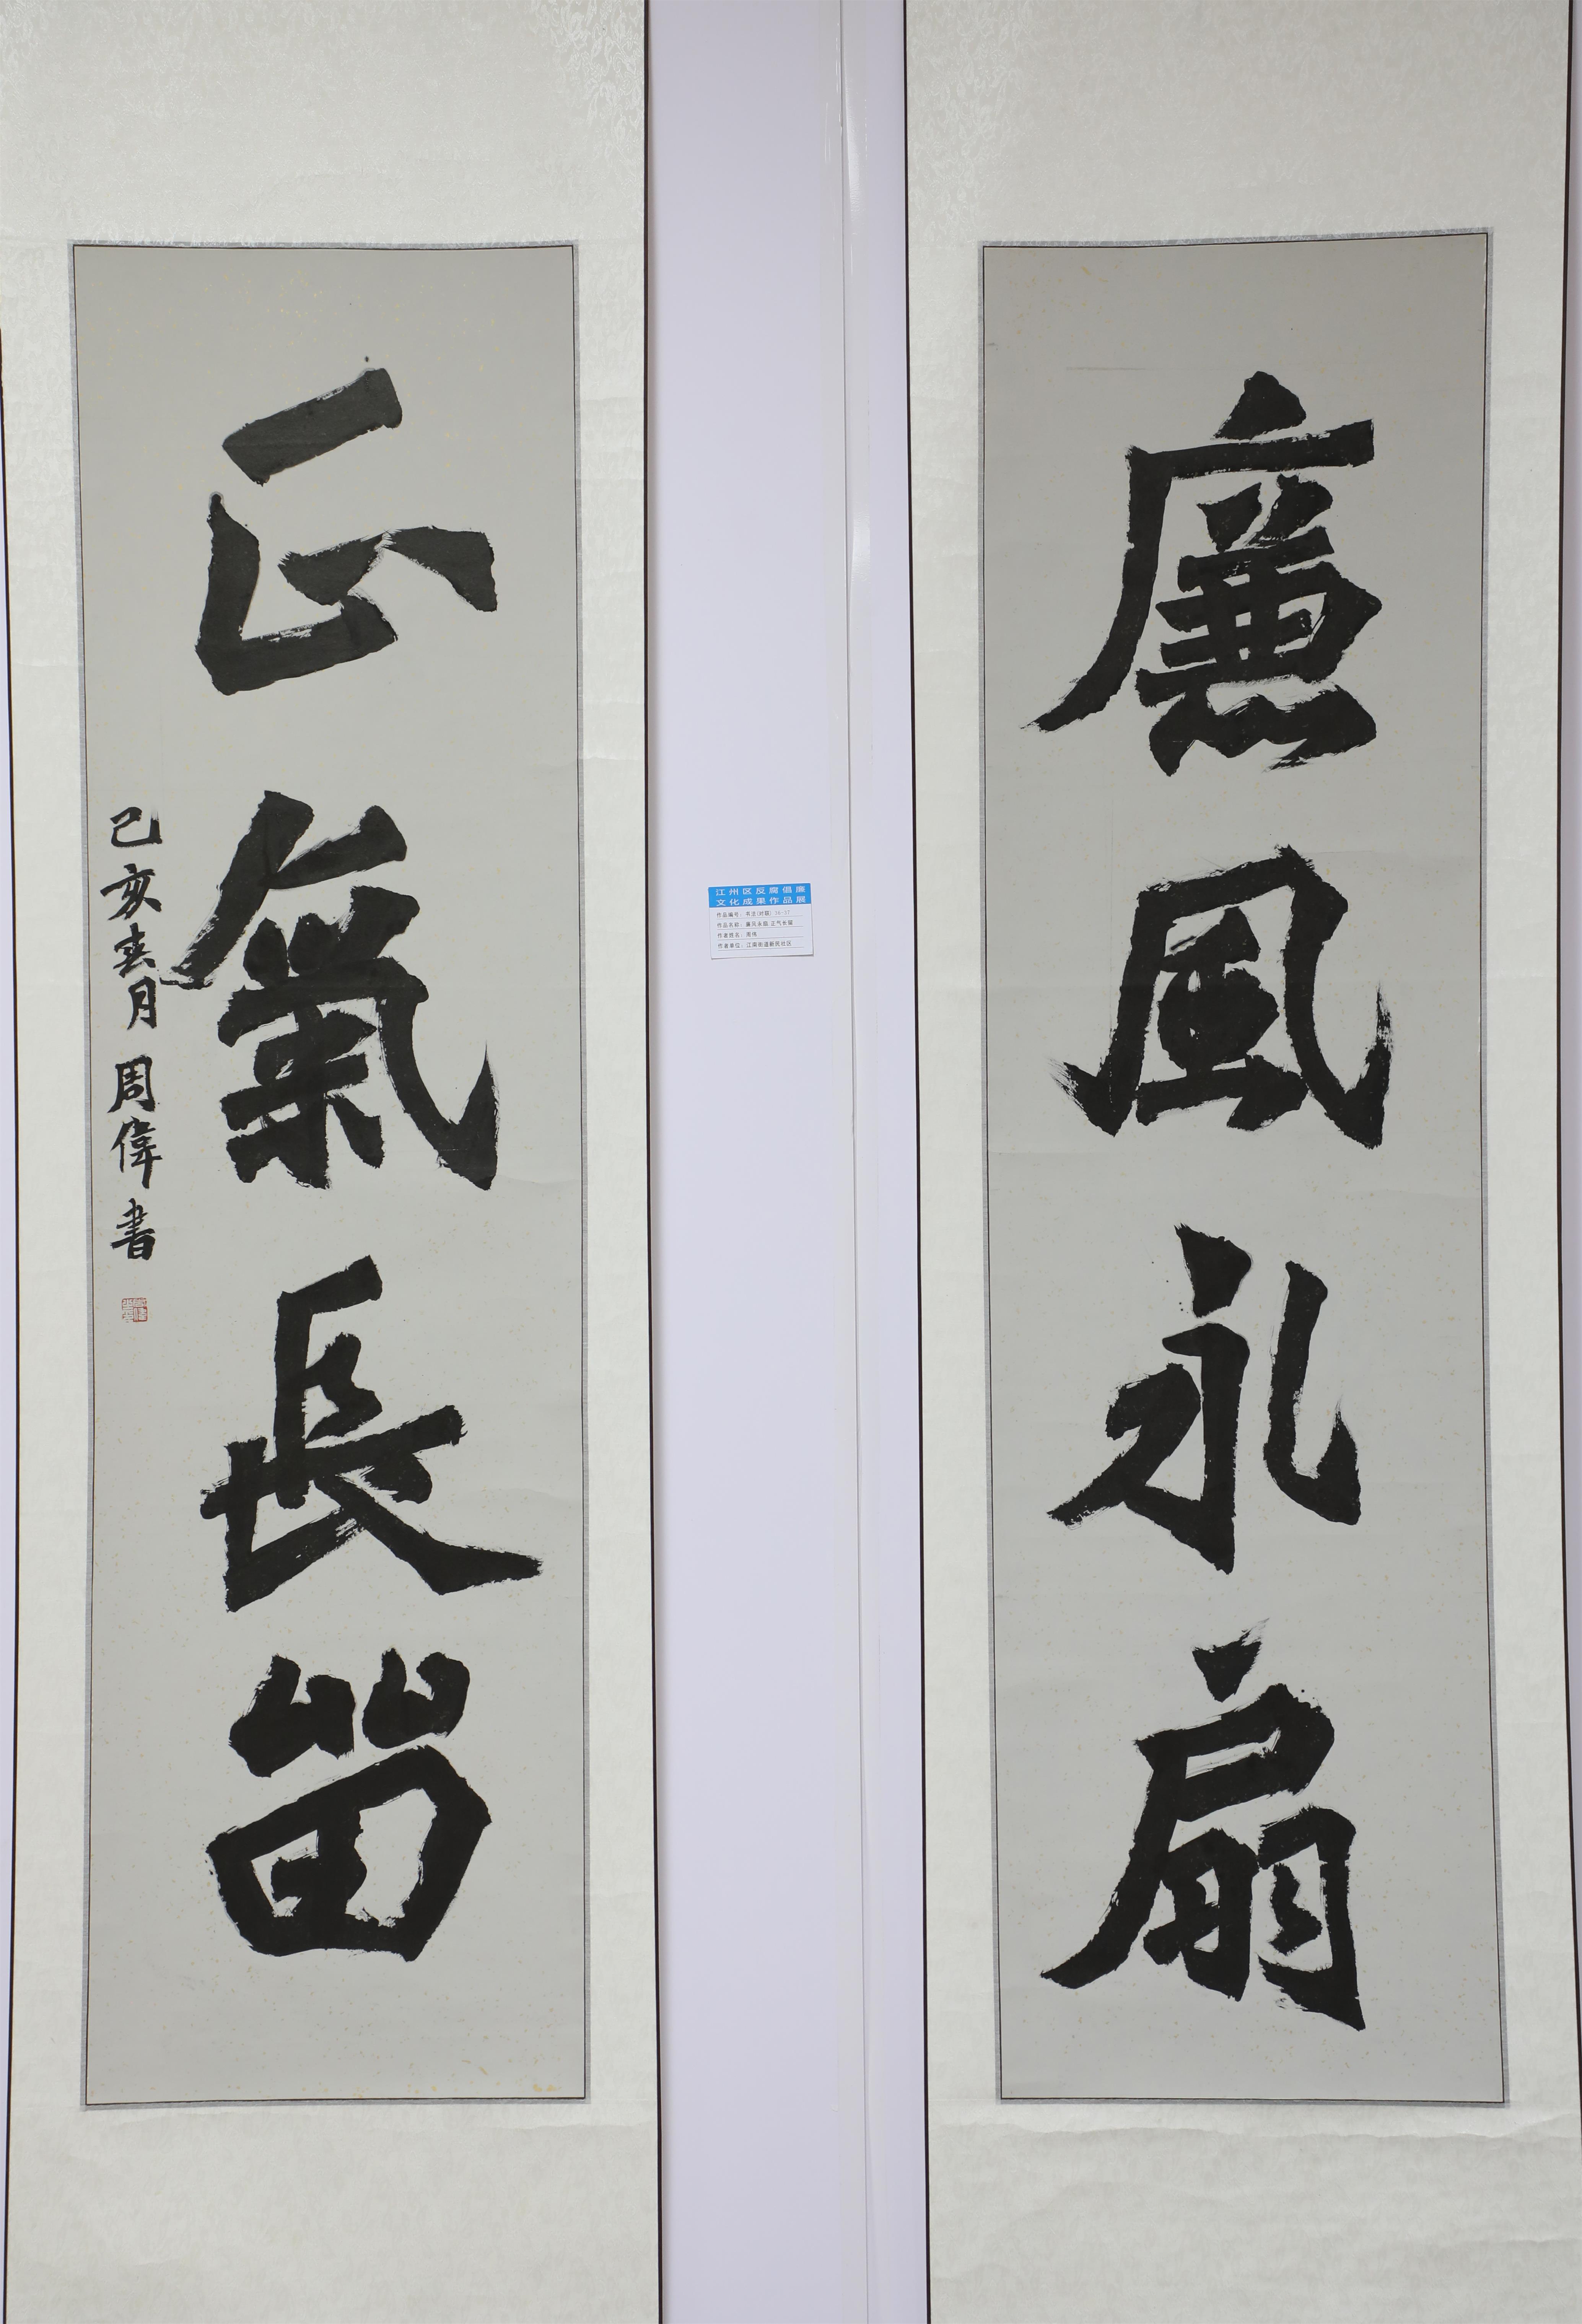 廉風永扇
正氣長留
己亥春月周偉書
江州区反腐倡廉
文化成果作品展
作品编号：书法(对联)
作品名称：廉风永扇 正气长留
作者姓名：周伟
作者单位：江南街道新民社区